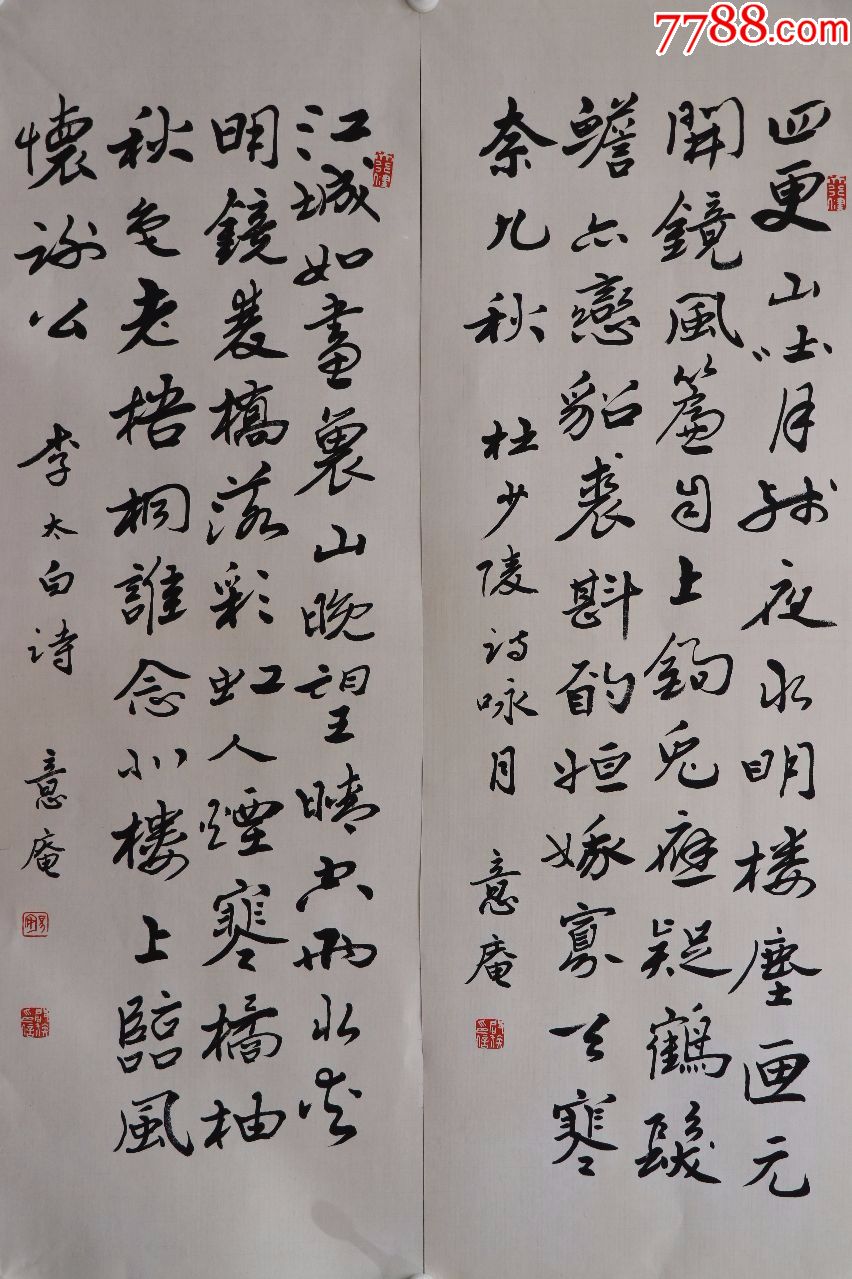 7788.com
四更山吐月残夜水明楼塵匣元
開鏡風簾自上鈎兔應疑鶴髮
蟾亦戀貂裘斟酌姮娥寡天寒
奈九秋 杜少陵诗咏月 意庵
江城如畫裏山晚望晴空兩水夾
明鏡雙橋落彩虹人煙寒橘柚
秋色老梧桐誰念北楼上臨風
懷謝公 李太白诗 意庵